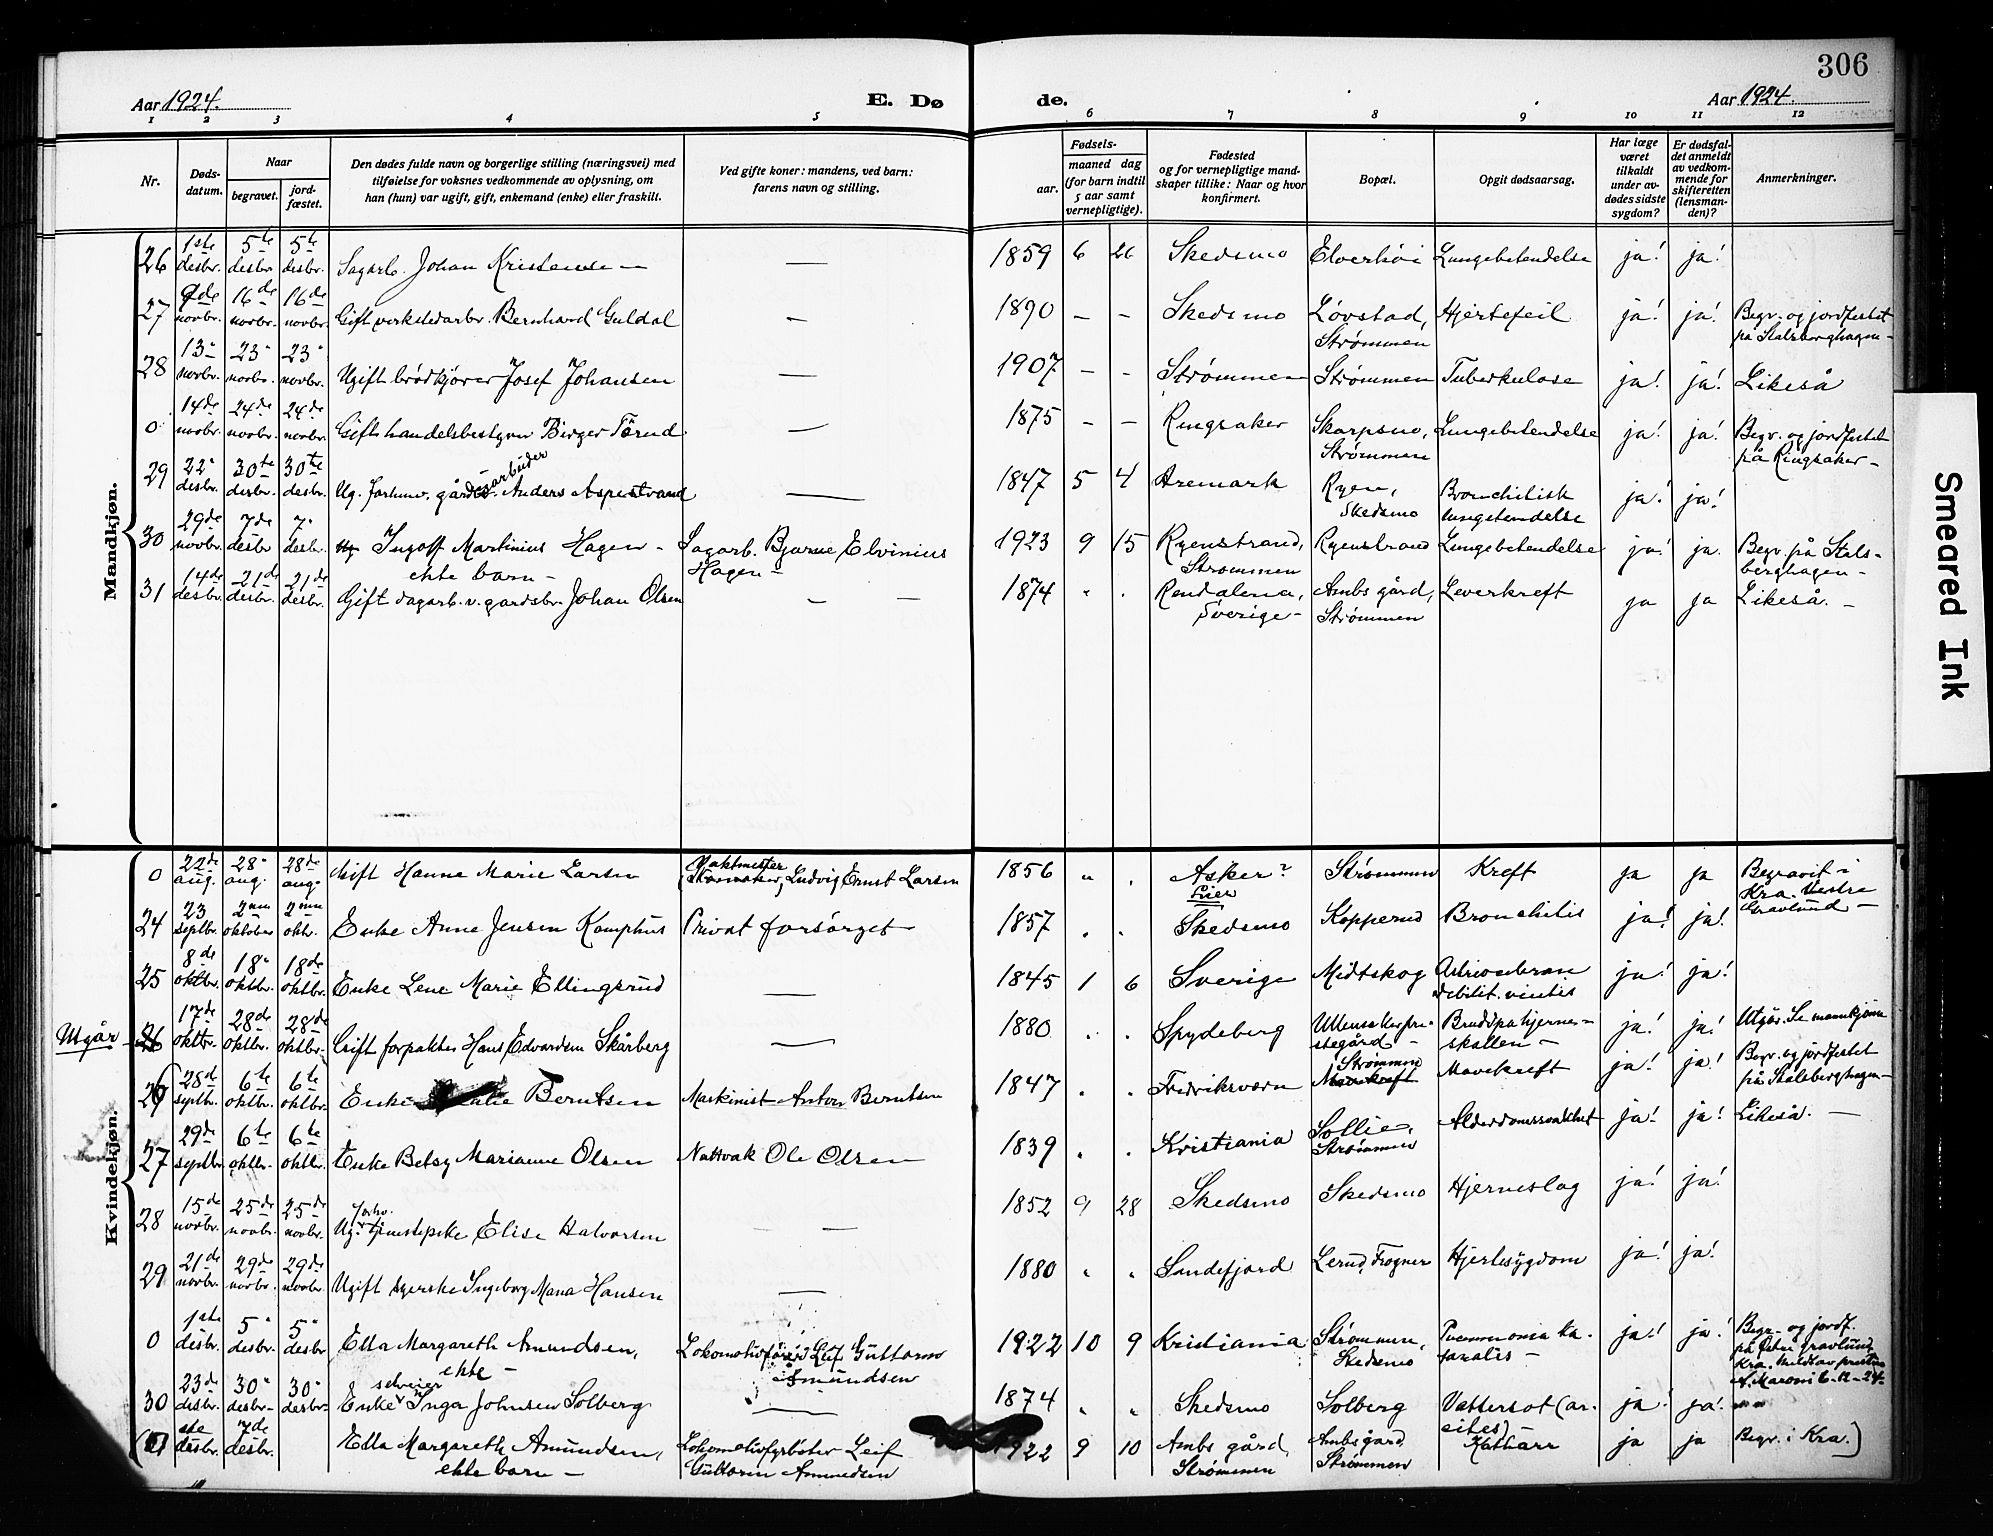 306
Aar 1924. E. Dø de. Aar 1924.
1 2 3 4 5 6 7 8 9 10 11 12
Nr.
Døds-
datum.
Naar
begravet.
jord-
fæstet.
Den dødes fulde navn og borgerlige stilling (næringsvei) med
tilføielse for voksnes vedkommende av oplysning, om
han (hun) var ugift, gift, enkemand (enke) eller fraskilt.
Ved gifte koner: mandens, ved barn:
farens navn og stilling.
Fødsels-
aar.
maaned dag
(for barn indtil
5 aar samt
vernepligtige).
Fødested
og for vernepligtige mand-
skaper tillike: Naar og hvor
konfirmert.
Bopæl.
Opgit dødsaarsag.
Har læge
været
tilkaldt
under av-
dødes sidste
sygdom?
Er dødsfal-
det anmeldt
av vedkom-
mende for
skifteretten
(lensman-
den)?
Anmerkninger.
Mandkjøn.
26 1ste desbr. 5te desbr. 5te desbr. Sagarb. Johan Kristense — — 1859 6 26 Skedsmo Elverhöi Lungebetendelse ja! ja!
27 9de novbr. 16de novbr. 16de novbr. Gift verkstedarbr. Bernhard Guldal — 1890 – – Skedsmo Løvstad, Strømmen Hjertefeil ja! ja! Begr. og jordfestet på Stalsberghagen –
28 13" novbr. 23" novbr. 23" novbr. Ugift brödkjörer Josef Johansen — 1907 – – Strømmen Strømmen Tuberkulose ja! ja! Likeså
0 14de novbr. 24de novbr. 24de novbr. Gift handelsbestyrer Birger Törud — 1875 – – Ringsaker Skarpsno, Strømmen Lungebetendelse ja! ja! Begr. og jordfestet på Ringsaker –
29 22" desbr. 30te desbr. 30te desbr. Ug. forhenv. gårdsarbeider Anders Aspestrand — 1847 5 4 Aremark Ryen, Skedsmo Bronchitisk lungetendelse ja! ja!
30 29de novbr. 7de desbr. 7" desbr. Ingolf Martinius Hagen – ekte barn – Sagarb. Bjarne Elvinius Hagen – 1923 9 15 Ryenstrand, Strømmen Ryenstrand Lungebetendelse ja! ja. Begr. på Stals-berghagen –
31 14de desbr. 21de desbr. 21de desbr. Gift dagarb. v. gardsbr. Johan Olsen — — 1874 " " Rendalena, Sverige – Ambs gård, Strømmen Leverkreft ja ja Likeså. –
Kvindekjøn.
0 22de aug. 28" aug. 28de aug. Gift Hanne Marie Larsen Vaktmester Skomaker, Ludvig Ernst Larsen 1856 " " Asker? Lier Strømmen Kreft ja ja Begravet i Kra. Vestre Gravlund –
24 23 septbr. 2nen oktober 2nen oktr. Enke Anne Jensen Kamphus Privat forsörget – 1857 " " Skedsmo Kopperud Bronchitis ja! ja!
25 8de oktbr. 18" oktbr. 18de oktbr. Enke Lene Marie Ellingsrud — 1845 1 6 Sverige Midtskog ja! ja!
Utgår – 26 17de oktbr. 28de oktbr. 28de oktbr. Gift forpakter Hans Edvardsen Skårberg — 1880 " " Spydeberg Ullensaker pre-stegård – Brudd på hjerne-skallen – ja! ja! Utgår. Se mannkjönn
26 28d septbr. 6te oktbr. 6te oktbr. Enke Berntsen Maskinist Anton Berntsen 1847 " " Fredriksværn Strømmen Mavekreft Mavekreft ja! ja! Begr. og jordfestet på Stalsberghagen –
27 29de septbr 6te oktbr. 6te oktbr. Enke Betsy Marianne Olsen Nattvak Ole Olsen 1839 " " Kristiania Sollie, Strømmen Alderdomssvakhet ja! ja! Likeså. –
28 15de novbr. 25de novbr. 25de novbr. Ug. forhv. tjenestepike Elise Halvorsen — — 1852 9 28 Skedsmo Skedsmo Hjerneslag ja! ja!
29 21de novbr. 29de novbr. 29de novbr. Ugift syerske Ingeborg Maria Hansen — 1880 " " Sandefjord Lerud, Frogner Hjertesygdom ja! ja!
0 1ste desbr. 5" desbr. 5" desbr Ella Margareth Amundsen, ekte – Lokomotivfører Leif Guttorm Amundsen 1922 10 9 Kristiania Strømmen, Skedsmo Pneumonia ka-taralis – ja! ja! Begr. og jordf. på Østre gravlund Kra. Meldt av presten N. Maroni 6-12-24.
30 23de desbr. 30" desbr– 30" desbr– Enke selveier Inga Johnsen Solberg — 1874 " " Skedsmo Solberg Vattersot (ascites) ja! ja!
(0 1ste desbr. 7de desbr. Ella Margareth Amundsen, ekte barn – Lokomotivfyrbøter Leif Guttorm Amundsen 1922 9 10 Ambs gård, Strømmen Ambs gård, Strømmen Katharr ja ja Begr. i Kra.)
Smeared Ink